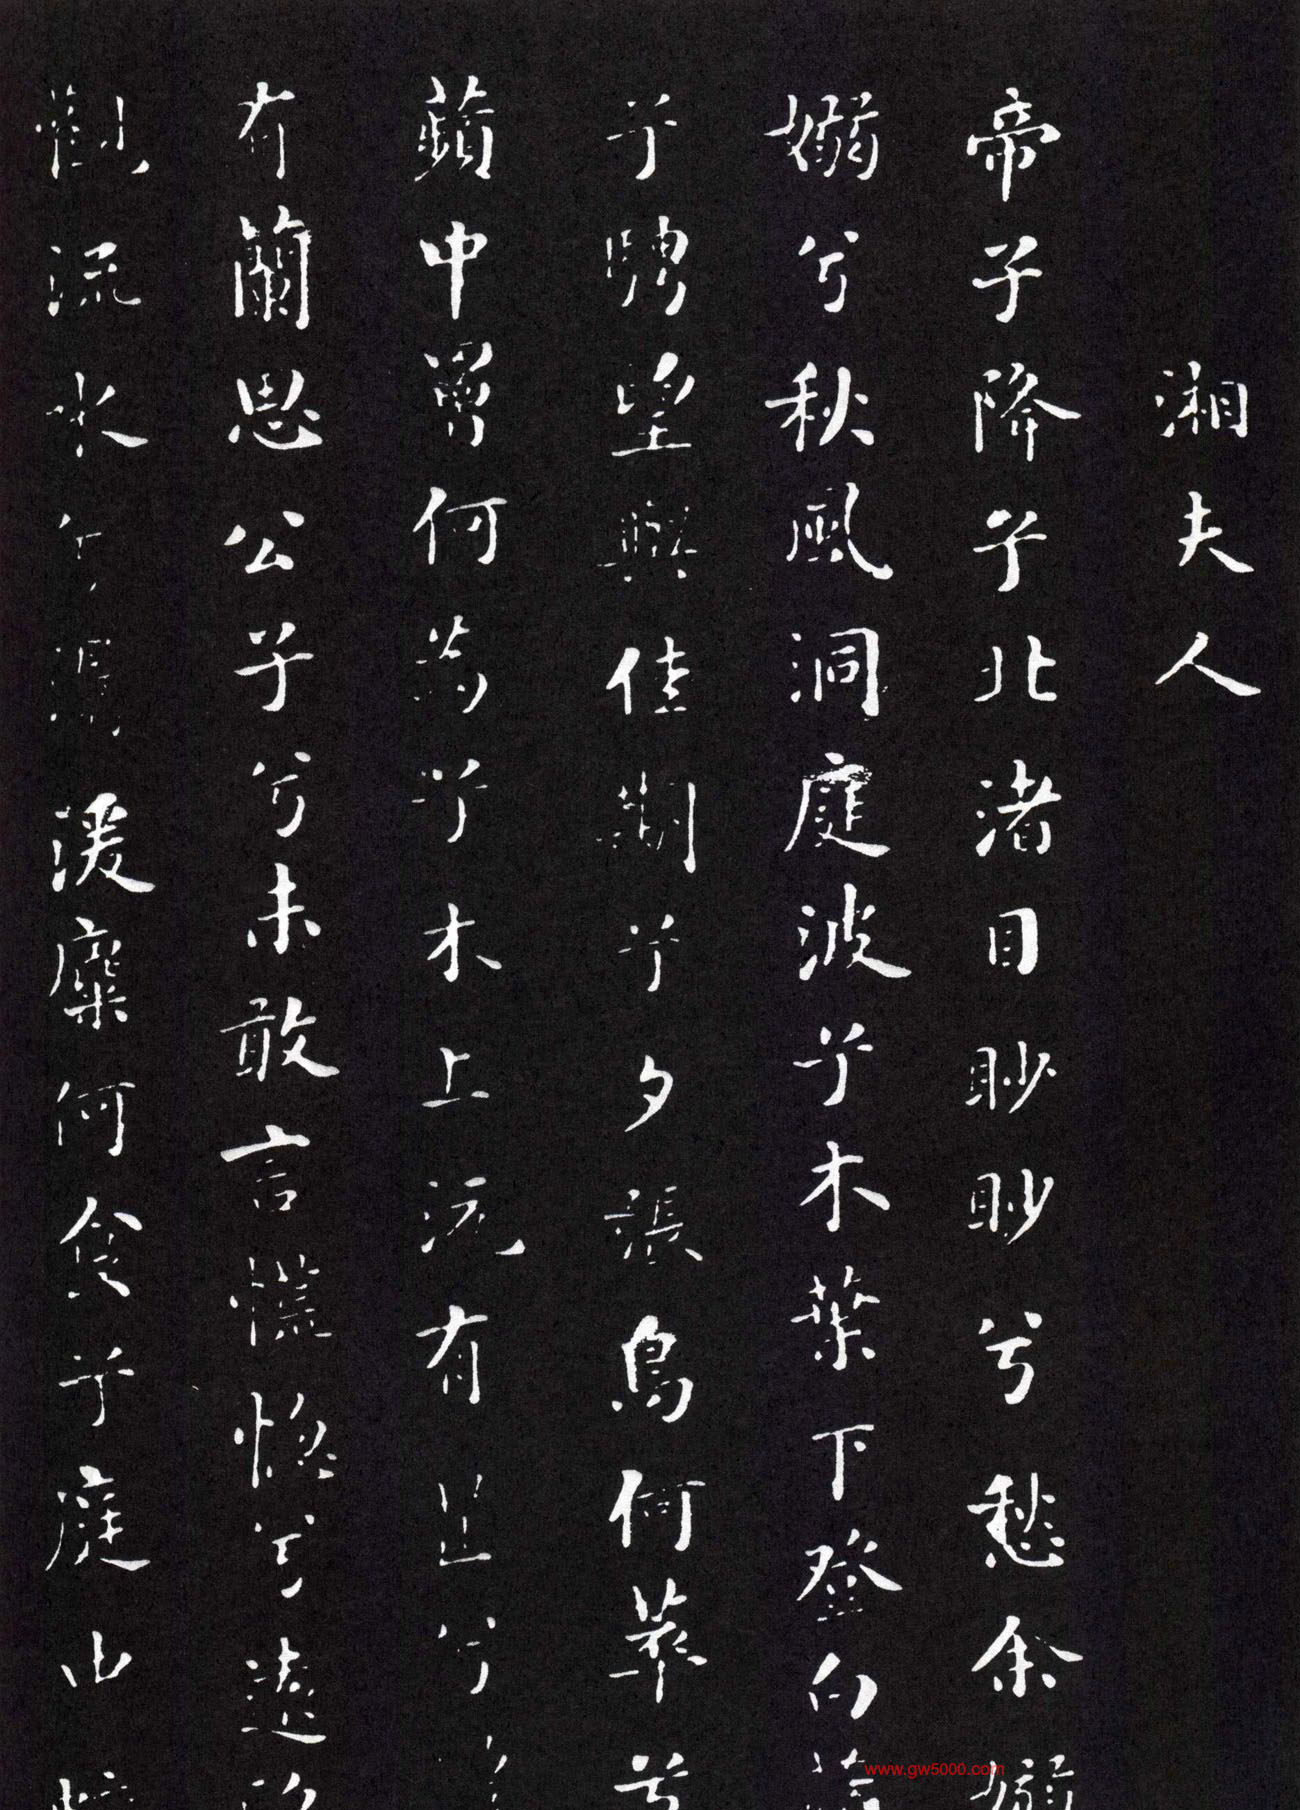 湘夫人
帝子降兮北渚目眇眇兮愁余嫋
嫋兮秋風洞庭波兮木葉下登白薠
兮騁望與佳期兮夕張鳥何萃兮
蘋中罾何為兮木上沅有芷兮
有蘭思公子兮未敢言慌惚兮遠
觀流水兮潺湲麋何食兮庭中
www.gw5000.com